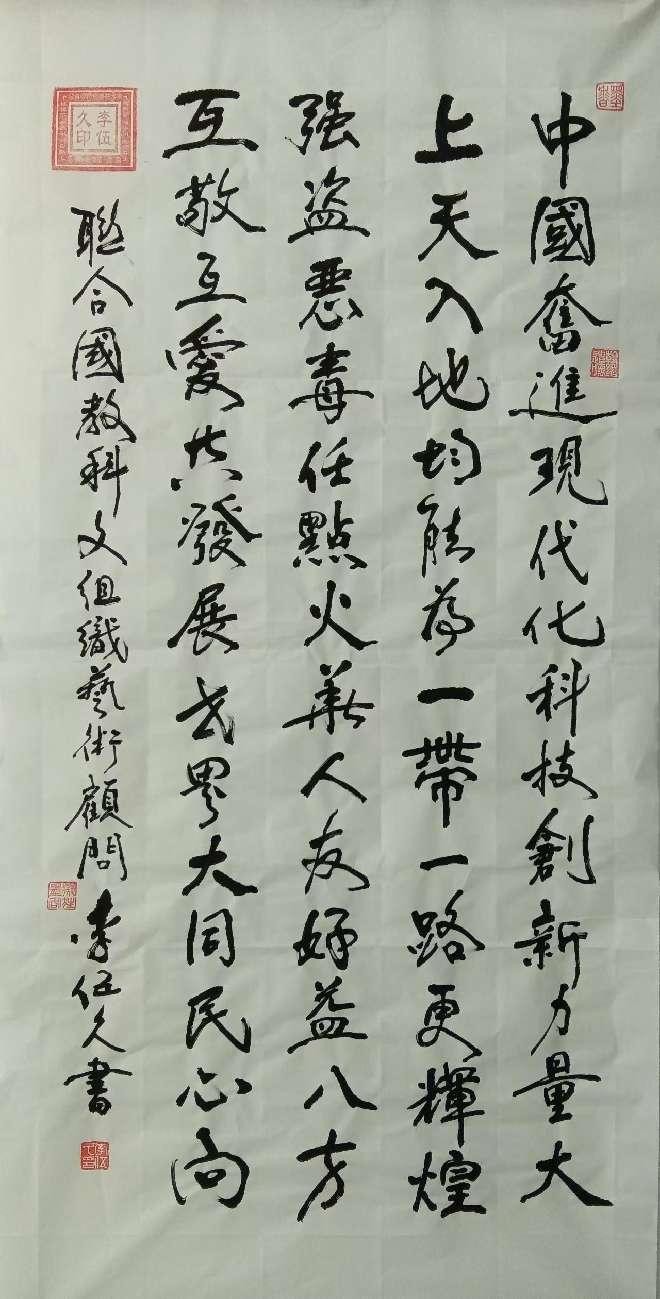 中國奮進現代化科技創新力量大
上天入地均能為一帶一路更輝煌
强盗惡毒任點火華人友好益八方
互敬互愛共發展世界大同民心向
聯合國教科文组織藝術顧問李伍久書
李伍久印